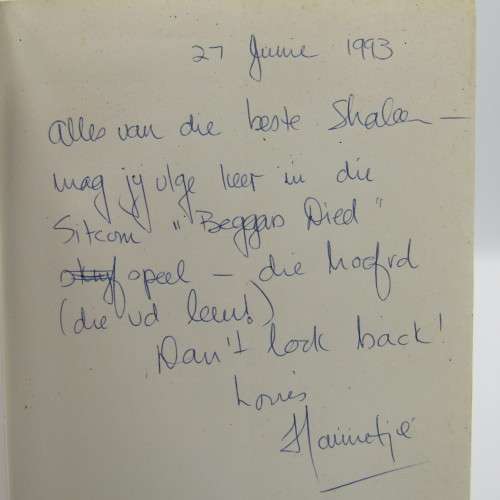 27 Junie 1993
Alles van die beste Shaleen —
mag jy vlge keer in die
Sitcom "Beggars Died"
speel — die hoofrd
(die vd leeu!)
Dan't look back!
Louis